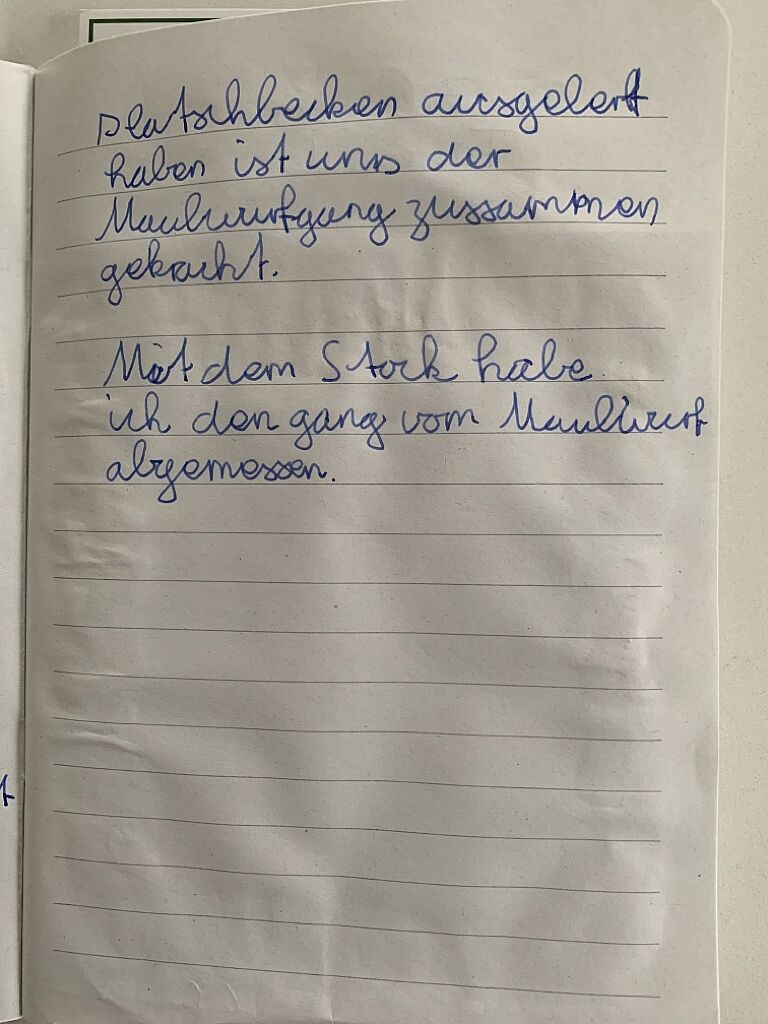 platschbecken ausgelert
haben ist uns der
Maulwurfgang zussammen
gekracht.
Mit dem Stock habe
ich den gang vom Maulwurf
abgemessen.